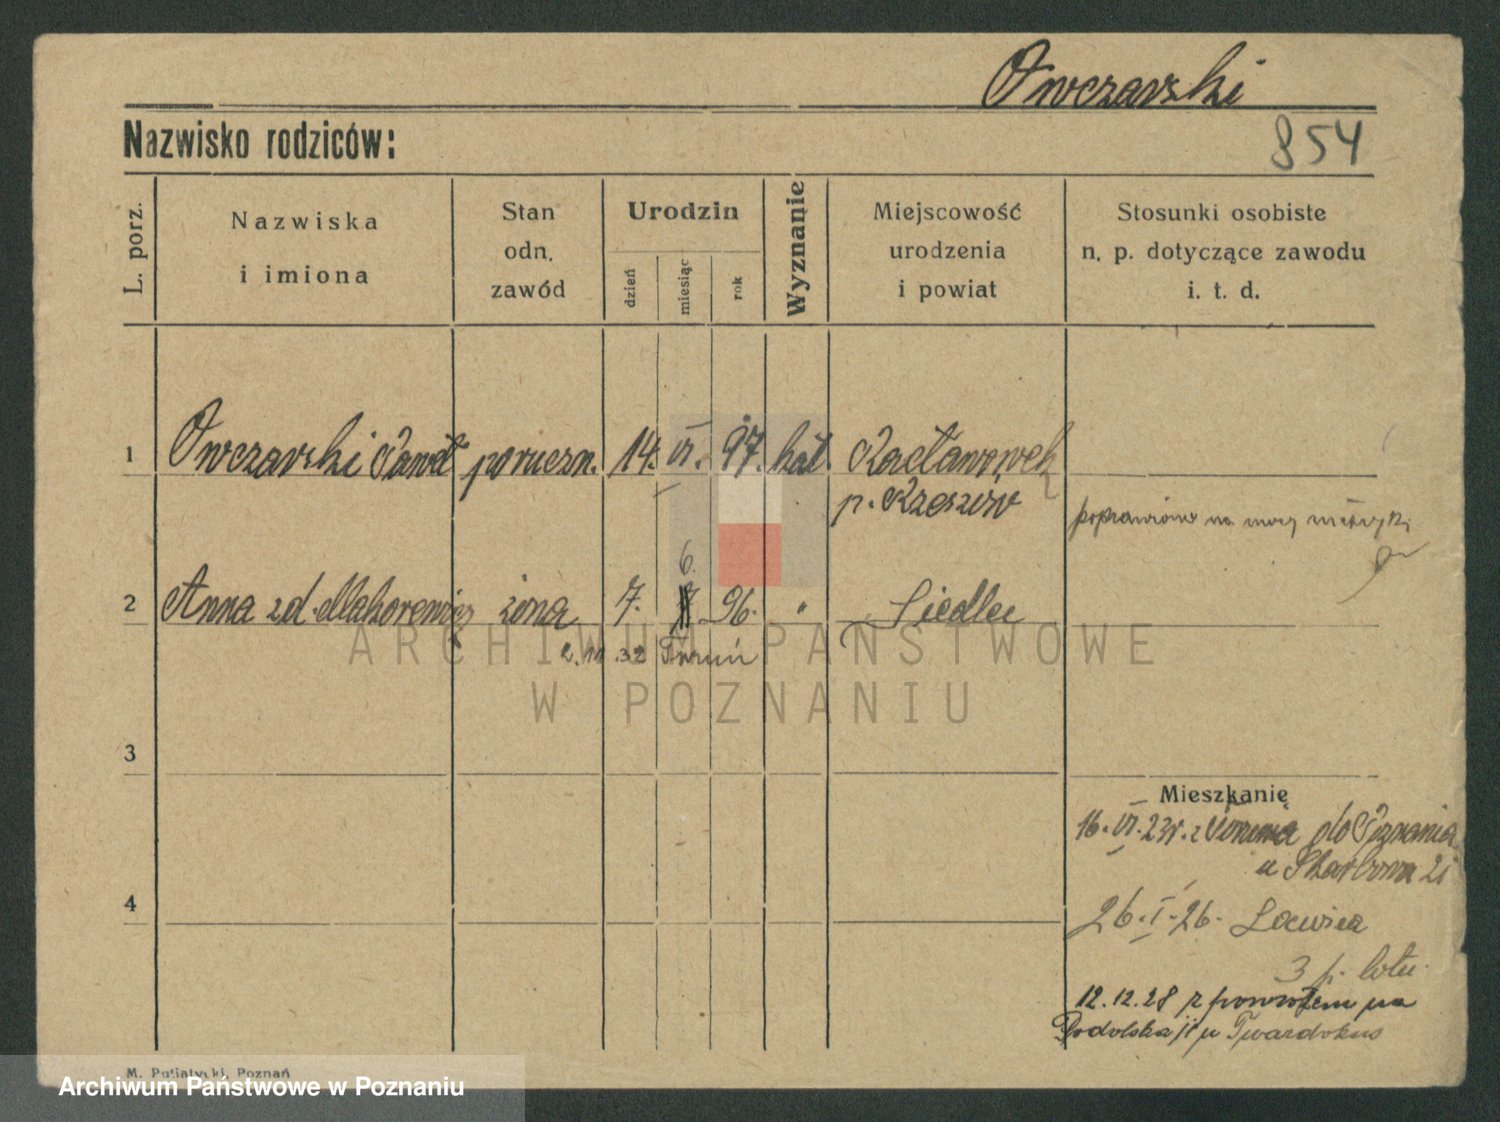 Owczarski
Nazwisko rodziców:
854
L. porz.
Nazwiska
i imiona
Stan
odn.
zawód
Urodzin
dzień
miesiąc
rok
Wyznanie
Miejscowość
urodzenia
i powiat
Stosunki osobiste
n. p. dotyczące zawodu
i. t. d.
1 Owczarski Paweł poruczn. 14. VI. 97. kat.
p. Rzeszów
poprawiono na mocy
6.
2 Anna zd. Makorewicz żona 7. 96. " Siedlec
2.11.32 Toruń
ARCHIWUM PAŃSTWOWE
W POZNANIU
3
Mieszkanie
16. VI. 23r. z Torunia do Poznania
u Skarbowa 21
4
26. I. 26. Ławica
3 p. lotn.
12.12.28 z powrotem na
Podolska 11 u Twardokus
M. Putiatycki, Poznań
Archiwum Państwowe w Poznaniu